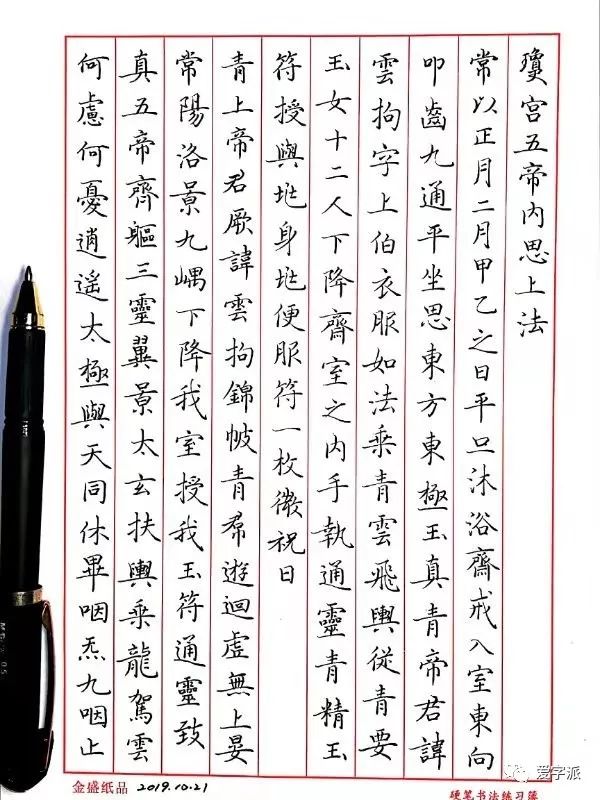 瓊宮五帝內思上法
常以正月二月甲乙之日平旦沐浴齋戒入室東向
叩齒九通平坐思東方東極玉真青帝君諱
雲拘字上伯衣服如法乘青雲飛輿從青要
玉女十二人下降齋室之內手執通靈青精玉
符授與坨身坨便服符一枚微祝曰
青上帝君厥諱雲拘錦帔青帬遊迴虛無上晏
常陽洛景九嵎下降我室授我玉符通靈致
真五帝齊軀三靈翼景太玄扶輿乘龍駕雲
何慮何憂逍遙太極與天同休畢咽炁九咽止
金盛纸品 2019.10.21
硬笔书法练习簿
爱字派